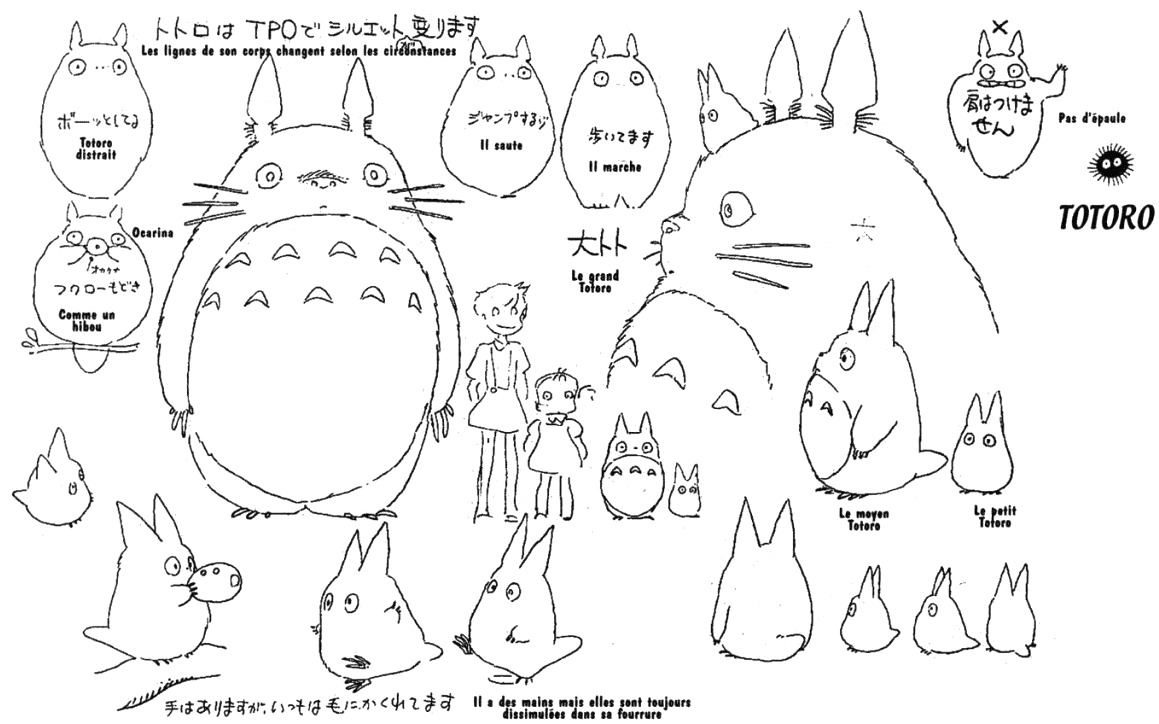 トトロは TPOで シルエットが 変ります
Les lignes de son corps changent selon les circonstances
ボーッとしてる
Totoro
distrait
ジャンプするゾ
Il saute
歩いてます
Il marche
×
肩はつけま
せん
Pas d'épaule
TOTORO
Ocarina
オカリナ
フクローもどき
Comme un
hibou
大トト
Le grand
Totoro
Le moyen
Totoro
Le petit
Totoro
手はありますが、いつもは毛にかくれてます
Il a des mains mais elles sont toujours
dissimulées dans sa fourrure